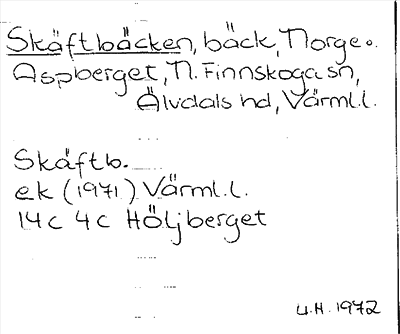 Skäftbäcken, bäck, Norge o.
Aspberget, N. Finnskoga sn,
Älvdals hd, Värml.l.
Skäftb.
ek (1971) Värml.l.
14c 4c Höljberget
U.H. 1972